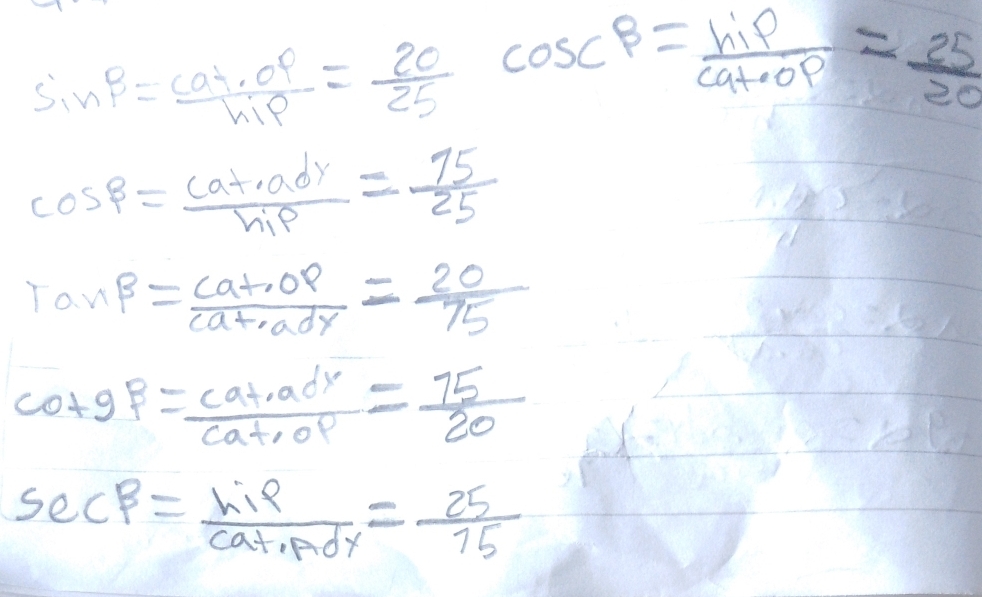 sinβ = cat.op/hip = 20/25 coscβ = hip/cat.op = 25/20
cosβ = cat.ady/hip = 15/25
Tanβ = cat.op/cat.ady = 20/15
cotgβ = cat.ady/cat.op = 15/20
secβ = hip/cat.Ady = 25/15